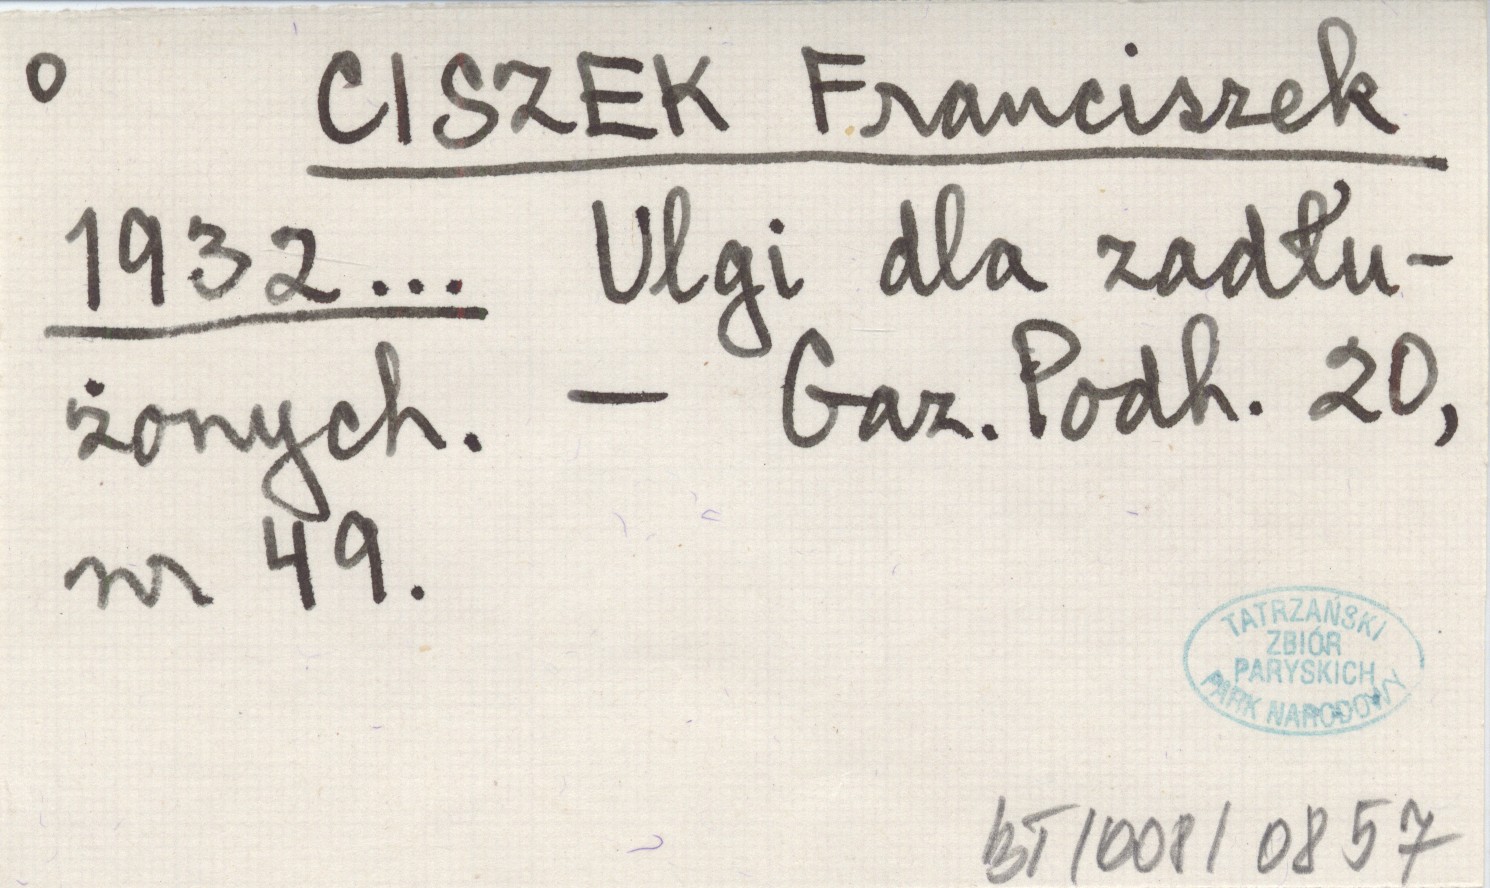 o CISZEK Franciszek
1932... Ulgi dla zadłu-
żonych. — Gaz. Podh. 20,
nr 49.
TATRZAŃSKI
ZBIÓR
PARYSKICH
PARK NARODOWY
BT/008/0857